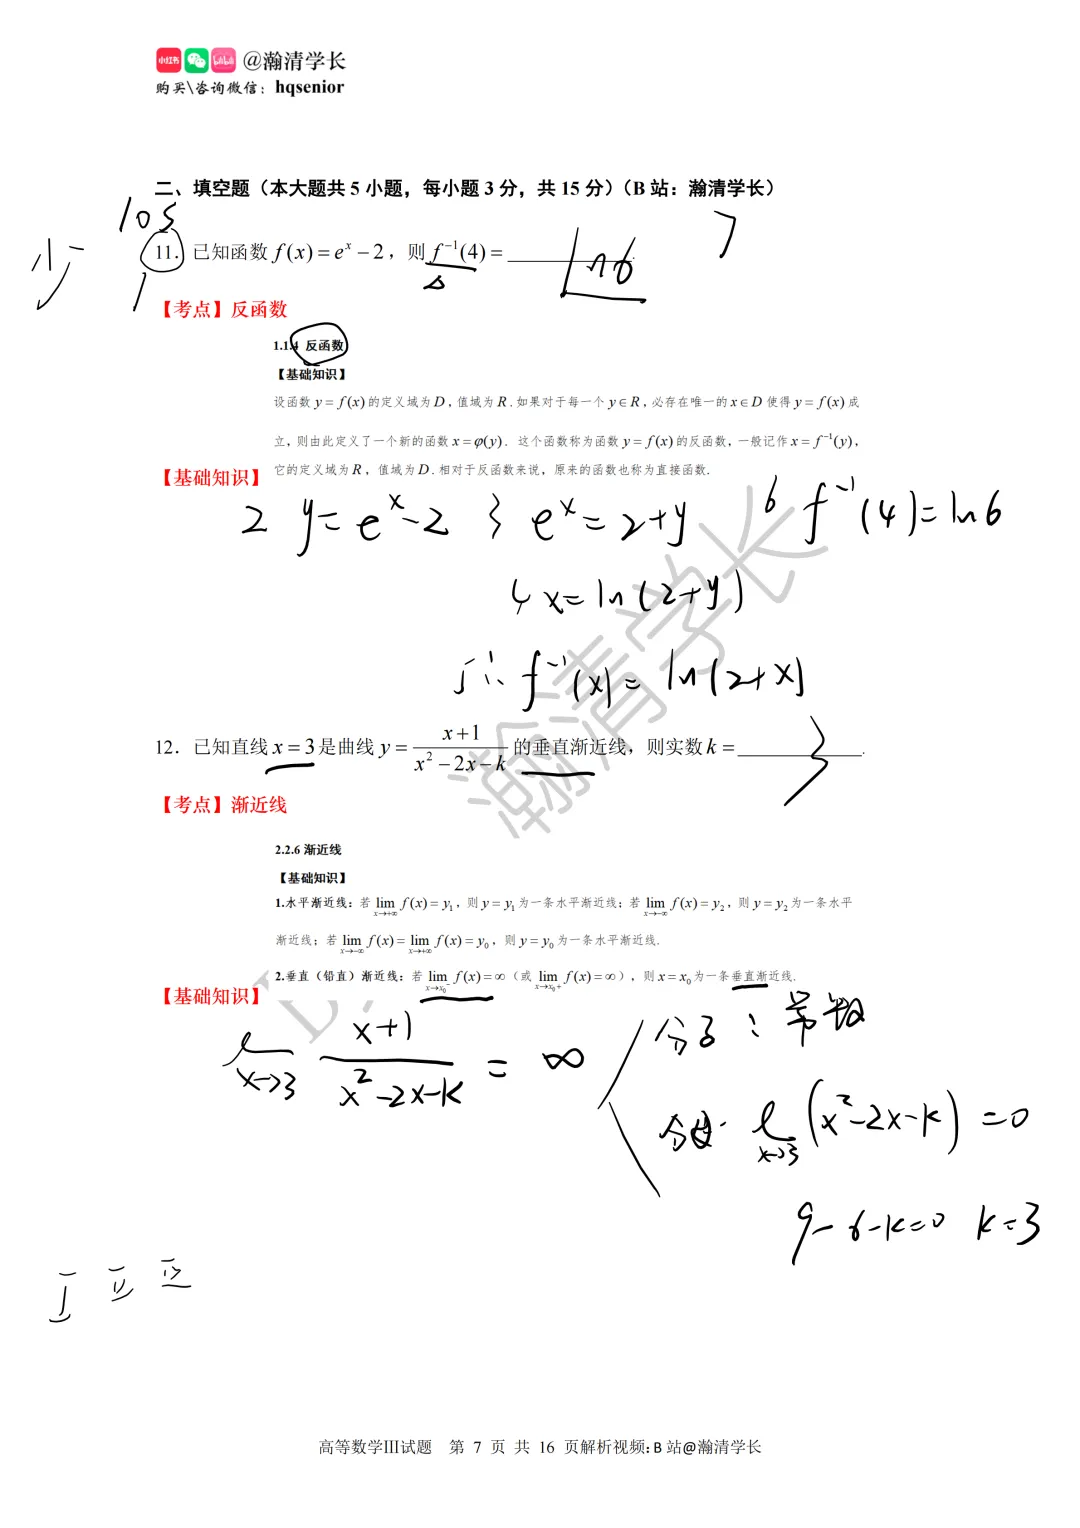 小红书 bilibili @瀚清学长
购买\咨询微信：hqsenior
二、填空题（本大题共 5 小题，每小题 3 分，共 15 分）（B 站：瀚清学长）
10s
11．已知函数 f(x) = e^x − 2，则 f^{-1}(4) = ____________.
ln6
7
少
1
【考点】反函数
1.1.4 反函数
【基础知识】
设函数 y = f(x) 的定义域为 D，值域为 R．如果对于每一个 y∈R，必存在唯一的 x∈D 使得 y = f(x) 成
立，则由此定义了一个新的函数 x = φ(y)．这个函数称为函数 y = f(x) 的反函数，一般记作 x = f^{-1}(y)，
【基础知识】 它的定义域为 R，值域为 D．相对于反函数来说，原来的函数也称为直接函数．
2 y = e^x − 2 3 e^x = 2+y 6 f^{-1}(4) = ln6
4 x = ln(2+y)
5 ∴ f^{-1}(x) = ln(2+x)
瀚清学长
12．已知直线 x = 3 是曲线 y = (x+1)/(x^2 − 2x − k) 的垂直渐近线，则实数 k = ____________.
3
【考点】渐近线
2.2.6 渐近线
【基础知识】
1.水平渐近线：若 lim_{x→+∞} f(x) = y_1，则 y = y_1 为一条水平渐近线；若 lim_{x→−∞} f(x) = y_2，则 y = y_2 为一条水平
渐近线；若 lim_{x→−∞} f(x) = lim_{x→+∞} f(x) = y_0，则 y = y_0 为一条水平渐近线.
2.垂直（铅直）渐近线：若 lim_{x→x_0^-} f(x) = ∞（或 lim_{x→x_0+} f(x) = ∞），则 x = x_0 为一条垂直渐近线.
【基础知识】
l_{x→3} (x+1)/(x^2−2x−k) = ∞
分子：常数
分母：l_{x→3} (x^2−2x−k) = 0
9−6−k=0 k=3
高等数学III试题 第 7 页 共 16 页解析视频：B 站@瀚清学长